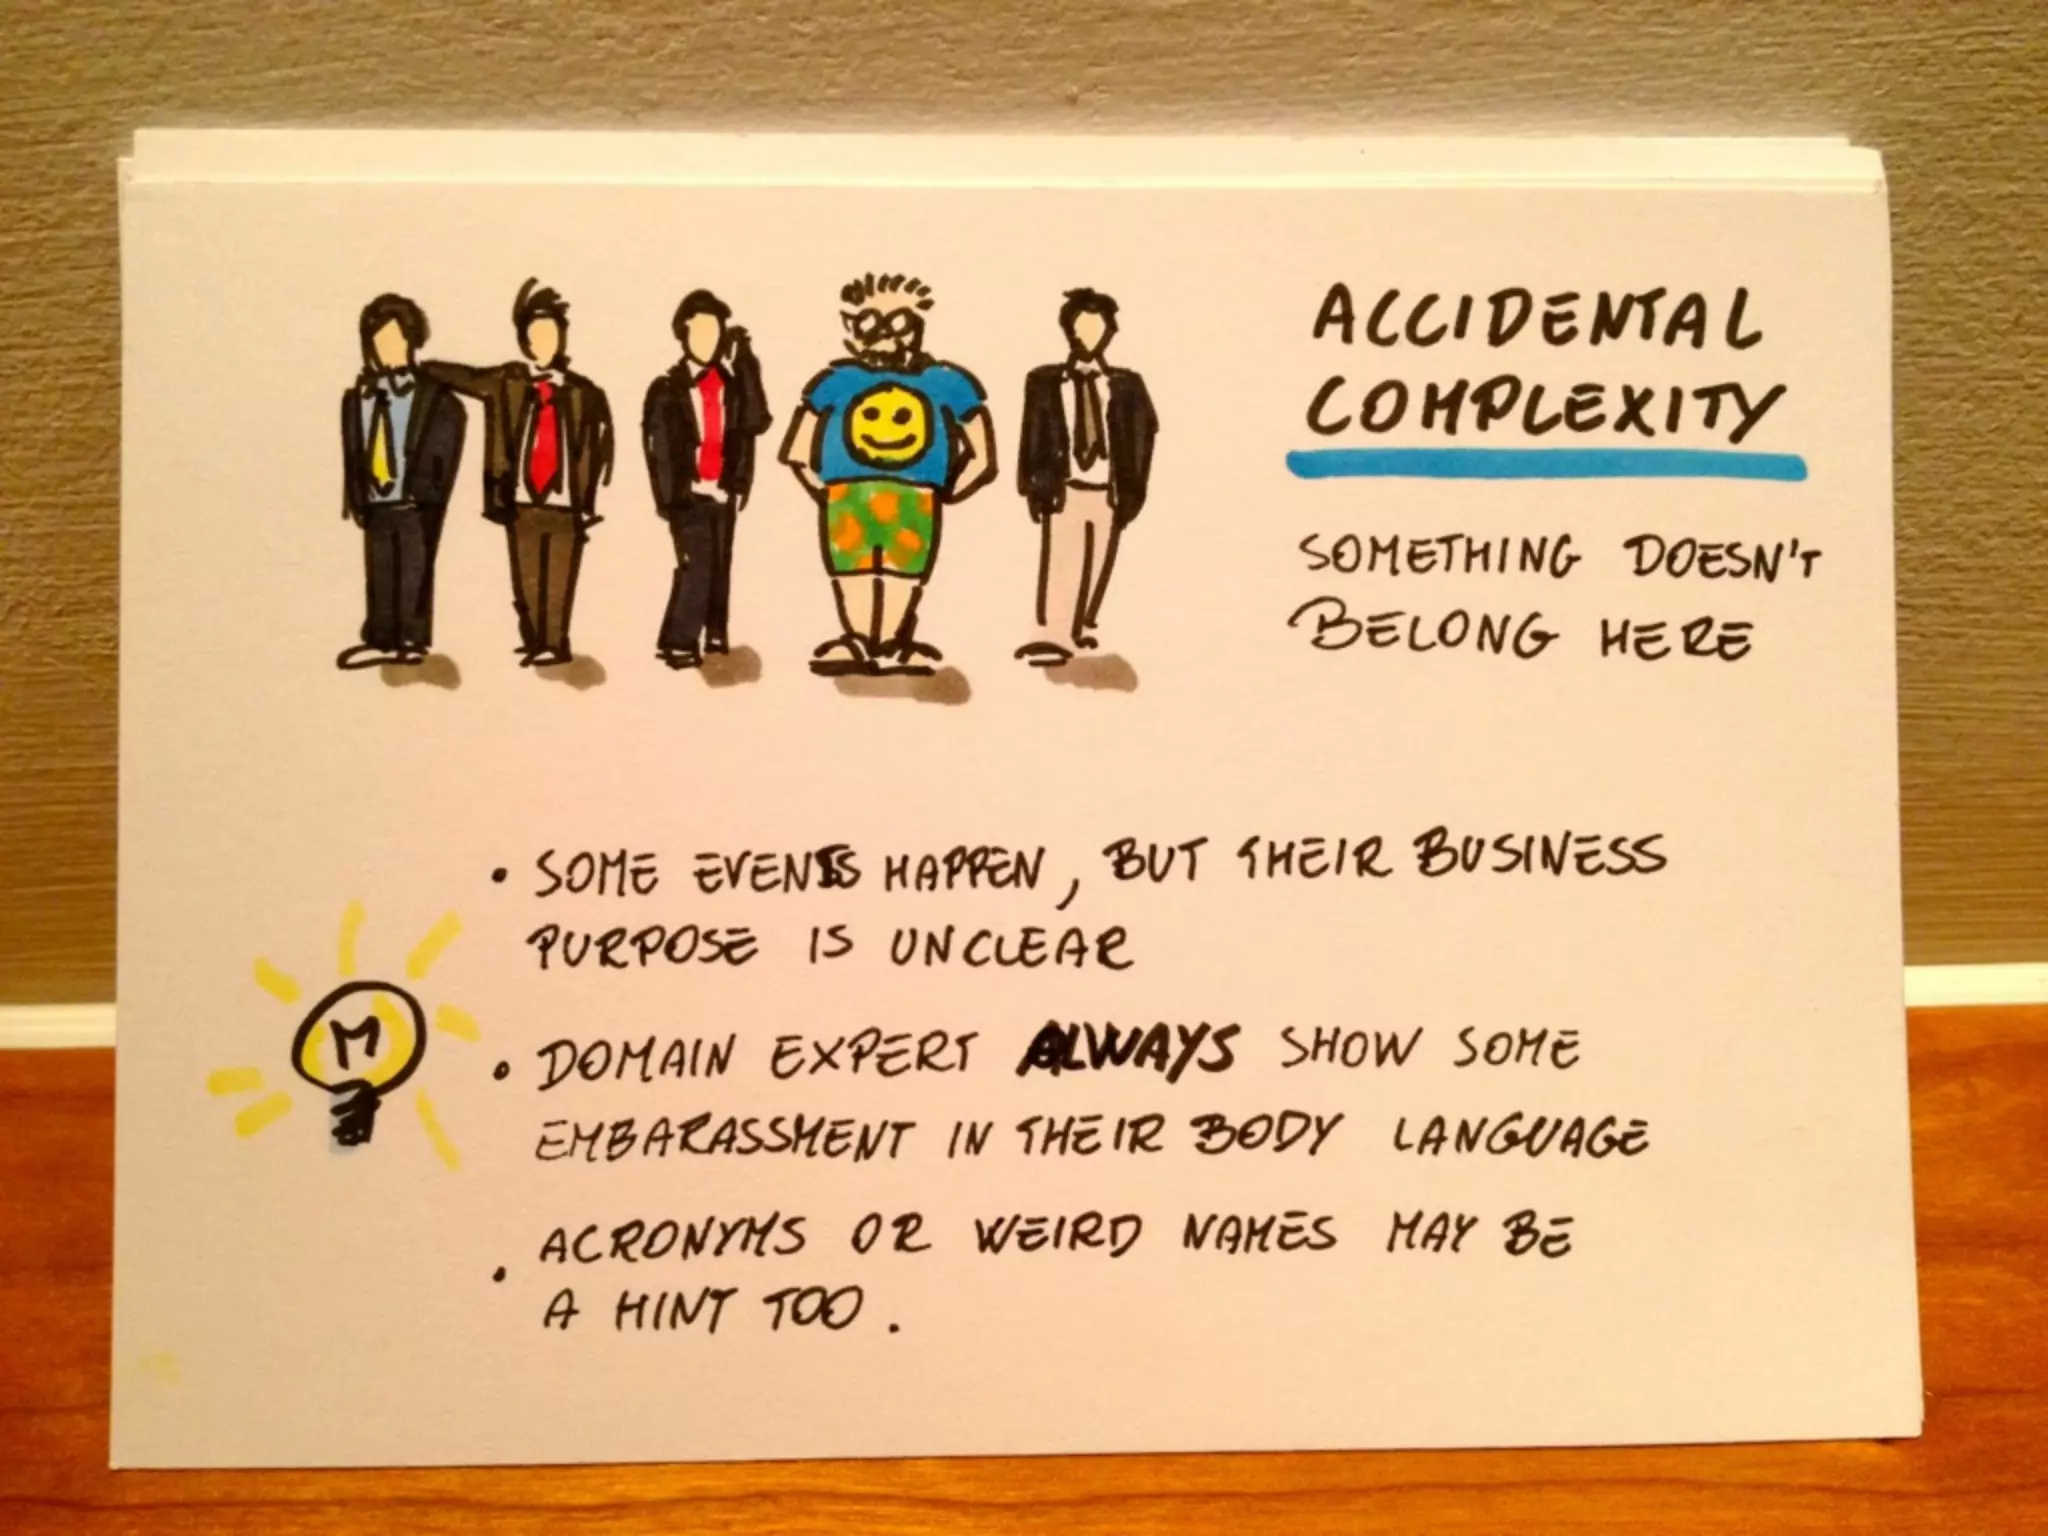 ACCIDENTAL
COMPLEXITY
SOMETHING DOESN'T
BELONG HERE
• SOME EVENTS HAPPEN, BUT THEIR BUSINESS
PURPOSE IS UNCLEAR
M
• DOMAIN EXPERT ALWAYS SHOW SOME
EMBARASSMENT IN THEIR BODY LANGUAGE
• ACRONYMS OR WEIRD NAMES MAY BE
A HINT TOO.